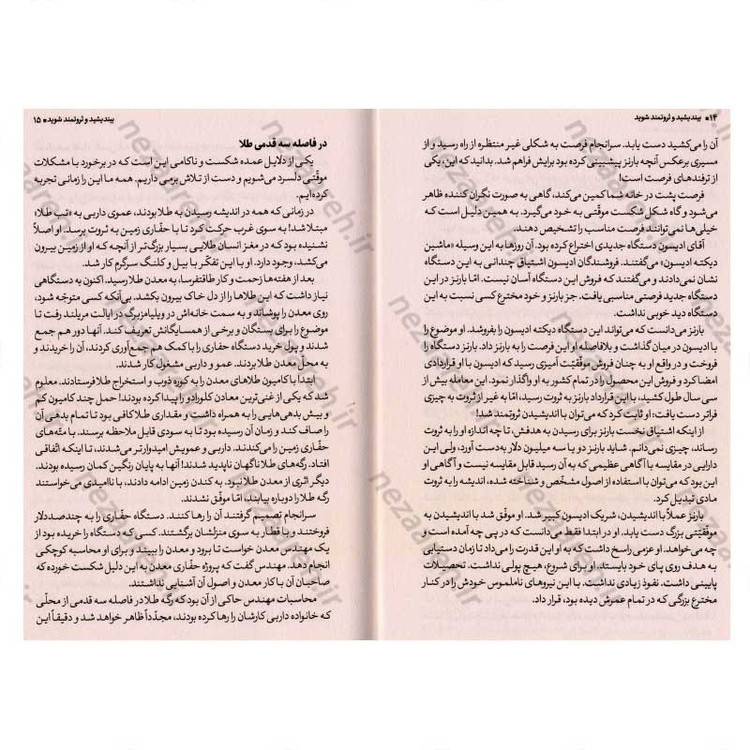 ۱۴● بیندیشید و ثروتمند شوید
آن را می‌کشید دست یابد. سرانجام فرصت به شکلی غیر منتظره از راه رسید و از
مسیری برعکس آنچه بارنز پیشبینی کرده بود برایش فراهم شد. بدانید که این، یکی
از ترفندهای فرصت است!
فرصت پشت در خانه شما کمین می‌کند، گاهی به صورت نگران کننده ظاهر
می‌شود و گاه شکل شکست موقتی به خود می‌گیرد. به همین دلیل است که
خیلی‌ها نمی‌توانند فرصت مناسب را تشخیص دهند.
آقای ادیسون دستگاه جدیدی اختراع کرده بود. آن روزها به این وسیله، «ماشین
دیکته ادیسون» می‌گفتند. فروشندگان ادیسون اشتیاق چندانی به این دستگاه
نشان نمی‌دادند و می‌گفتند که فروش این دستگاه آسان نیست. امّا بارنز در این
دستگاه جدید فرصتی مناسبی یافت. جز بارنز و خود مخترع کسی نسبت به این
دستگاه دید خوبی نداشت.
بارنز می‌دانست که می‌تواند این دستگاه دیکته ادیسون را بفروشد. او موضوع را
با ادیسون در میان گذاشت و بلافاصله او این فرصت را به بارنز داد. بارنز دستگاه را
فروخت و در واقع او به چنان فروش موفقیّت آمیزی رسید که ادیسون با او قراردادی
امضا کرد و فروش این محصول را در تمام کشور به او واگذار نمود. این معامله بیش از
سی سال طول کشید، با این قرارداد بارنز به ثروت رسید، امّا به غیر از ثروت به چیزی
فراتر دست یافت: او ثابت کرد که می‌توان با اندیشیدن ثروتمند شد!
از اینکه اشتیاق نخست بارنز برای رسیدن به هدفش، تا چه اندازه او را به ثروت
رساند، چیزی نمی‌دانم. شاید بارنز دو یا سه میلیون دلار به‌دست آورد، ولی این
دارایی در مقایسه با آگاهی عظیمی که به آن رسید قابل مقایسه نیست و آگاهی او
این بود که می‌توان با استفاده از اصول مشخّص و شناخته شده، اندیشه را به ثروت
مادی تبدیل کرد.
بارنز عملاً با اندیشیدن، شریک ادیسون کبیر شد. او موفق شد با اندیشیدن به
موفّقیّتی بزرگ دست یابد. او در ابتدا فقط می‌دانست که در پی چه آمده است و
چه می‌خواهد. او عزمی راسخ داشت که به او این قدرت را می‌داد تا زمان دستیابی
به هدف روی پای خود بایستد، او برای شروع، هیچ پولی نداشت. تحصیلات
پایینی داشت. نفوذ زیادی نداشت. با این نیروهای ناملموس خودش را در کنار
مخترع بزرگی که در تمام عمرش دیده بود، قرار داد.
بیندیشید و ثروتمند شوید● ۱۵
در فاصله سه قدمی طلا
یکی از دلایل عمده شکست و ناکامی این است که در برخورد با مشکلات
موقّتی دلسرد می‌شویم و دست از تلاش برمی داریم. همه ما این را زمانی تجربه
کرده‌ایم.
در زمانی که همه در اندیشه رسیدن به طلا بودند، عموی داربی به «تب طلا»
مبتلا شد! او به سوی غرب حرکت کرد تا با حفّاری زمین به ثروت برسد. او اصلاً
نشنیده بود که در مغز انسان طلایی بسیار بزرگ‌تر از آنچه که او از زمین بیرون
می‌کشد، وجود دارد. او با این تفکّر با بیل و کلنگ سرگرم کار شد.
بعد از هفته‌ها زحمت و کار طاقتفرسا، به معدن طلا رسید. اکنون به دستگاهی
نیاز داشت که این طلاها را از دل خاک بیرون بکشد. بی‌آنکه کسی متوجّه شود،
روی معدن را پوشاند و به سمت خانه‌اش در ویلیامزبرگ در ایالت مریلند رفت تا
موضوع را برای بستگان و برخی از همسایگانش تعریف کند. آنها دور هم جمع
شدند و پول خرید دستگاه حفاری را با کمک هم جمع‌آوری کردند، آن را خریدند و
به محلّ معدن طلا بردند. عمو و داربی مشغول کار شدند.
ابتدا با کامیون طلاهای معدن را به کوره ذوب و استخراج طلا فرستادند. معلوم
شد که یکی از غنی‌ترین معادن کلورادو را پیدا کرده بودند! حمل چند کامیون کم
و بیش بدهی‌هایی را به همراه داشت و مقداری طلا کافی بود تا تمام بدهی آن
را صاف کند و زمان آن رسیده بود تا به سودی قابل ملاحظه برسند. با متّه‌های
حفّاری زمین را می‌کندند. داربی و عمویش امیدوارتر می‌شدند، تا اینکه اتّفاقی
افتاد. رگه‌های طلا ناگهان ناپدید شدند! آنها به پایان رنگین کمان رسیده بودند.
دیگر اثری از معدن طلا نبود. به کندن زمین ادامه دادند، با ناامیدی می‌خواستند
رگه طلا را دوباره بیابند، امّا موفّق نشدند.
سرانجام تصمیم گرفتند آن را رها کنند. دستگاه حفّاری را به چند صد دلار
فروختند و با قطار به سوی منزلشان برگشتند. کسی که دستگاه را خریده بود از
یک مهندس معدن خواست تا برود و معدن را ببیند و برای او محاسبه کوچکی
انجام دهد. مهندس گفت که پروژه حفّاری معدن به این دلیل شکست خورده که
صاحبان آن با کار معدن و اصول آن آشنایی نداشتند.
محاسبات مهندس حاکی از آن بود که رگه طلا در فاصله سه قدمی از محلّی
که خانواده داربی کارشان را رها کرده بودند، مجدّداً ظاهر خواهد شد و دقیقاً این
nezaareh.ir